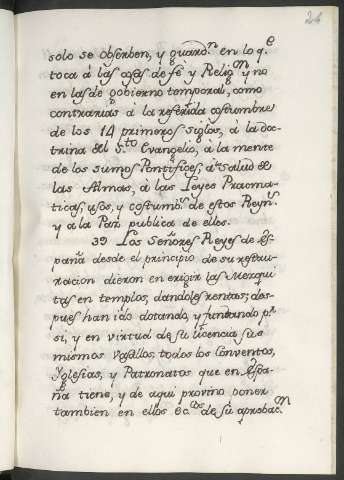 24
solo se observen, y guard.n en lo q.e
toca á las cosas de fé y Relig.on y no
en las de gobierno temporal, como
contrarias á la referida costumbre
de los 14 primeros siglos, á la doc-
trina del S.to Evangelio, á la mente
de los sumos Pontifices, á salud de
las Almas, á las Leyes Pracma-
ticas, usos, y costumb.s de estos Reyn.s
y a la Paz publica de ellos.
39 Los Señores Reyes de Es-
paña desde el principio de su restau-
racion dieron en erigir las Mezqui
tas en templos, dandoles rentas; des-
pues han ido dotando, y fundando p.r
si, y en virtud de su licencia sus
mismos Vasallos, todos los Conventos,
Yglesias, y Patronatos que en Espa-
ña tiene, y de aqui provino poner
tambien en ellos ec.cos de su aprobac.on